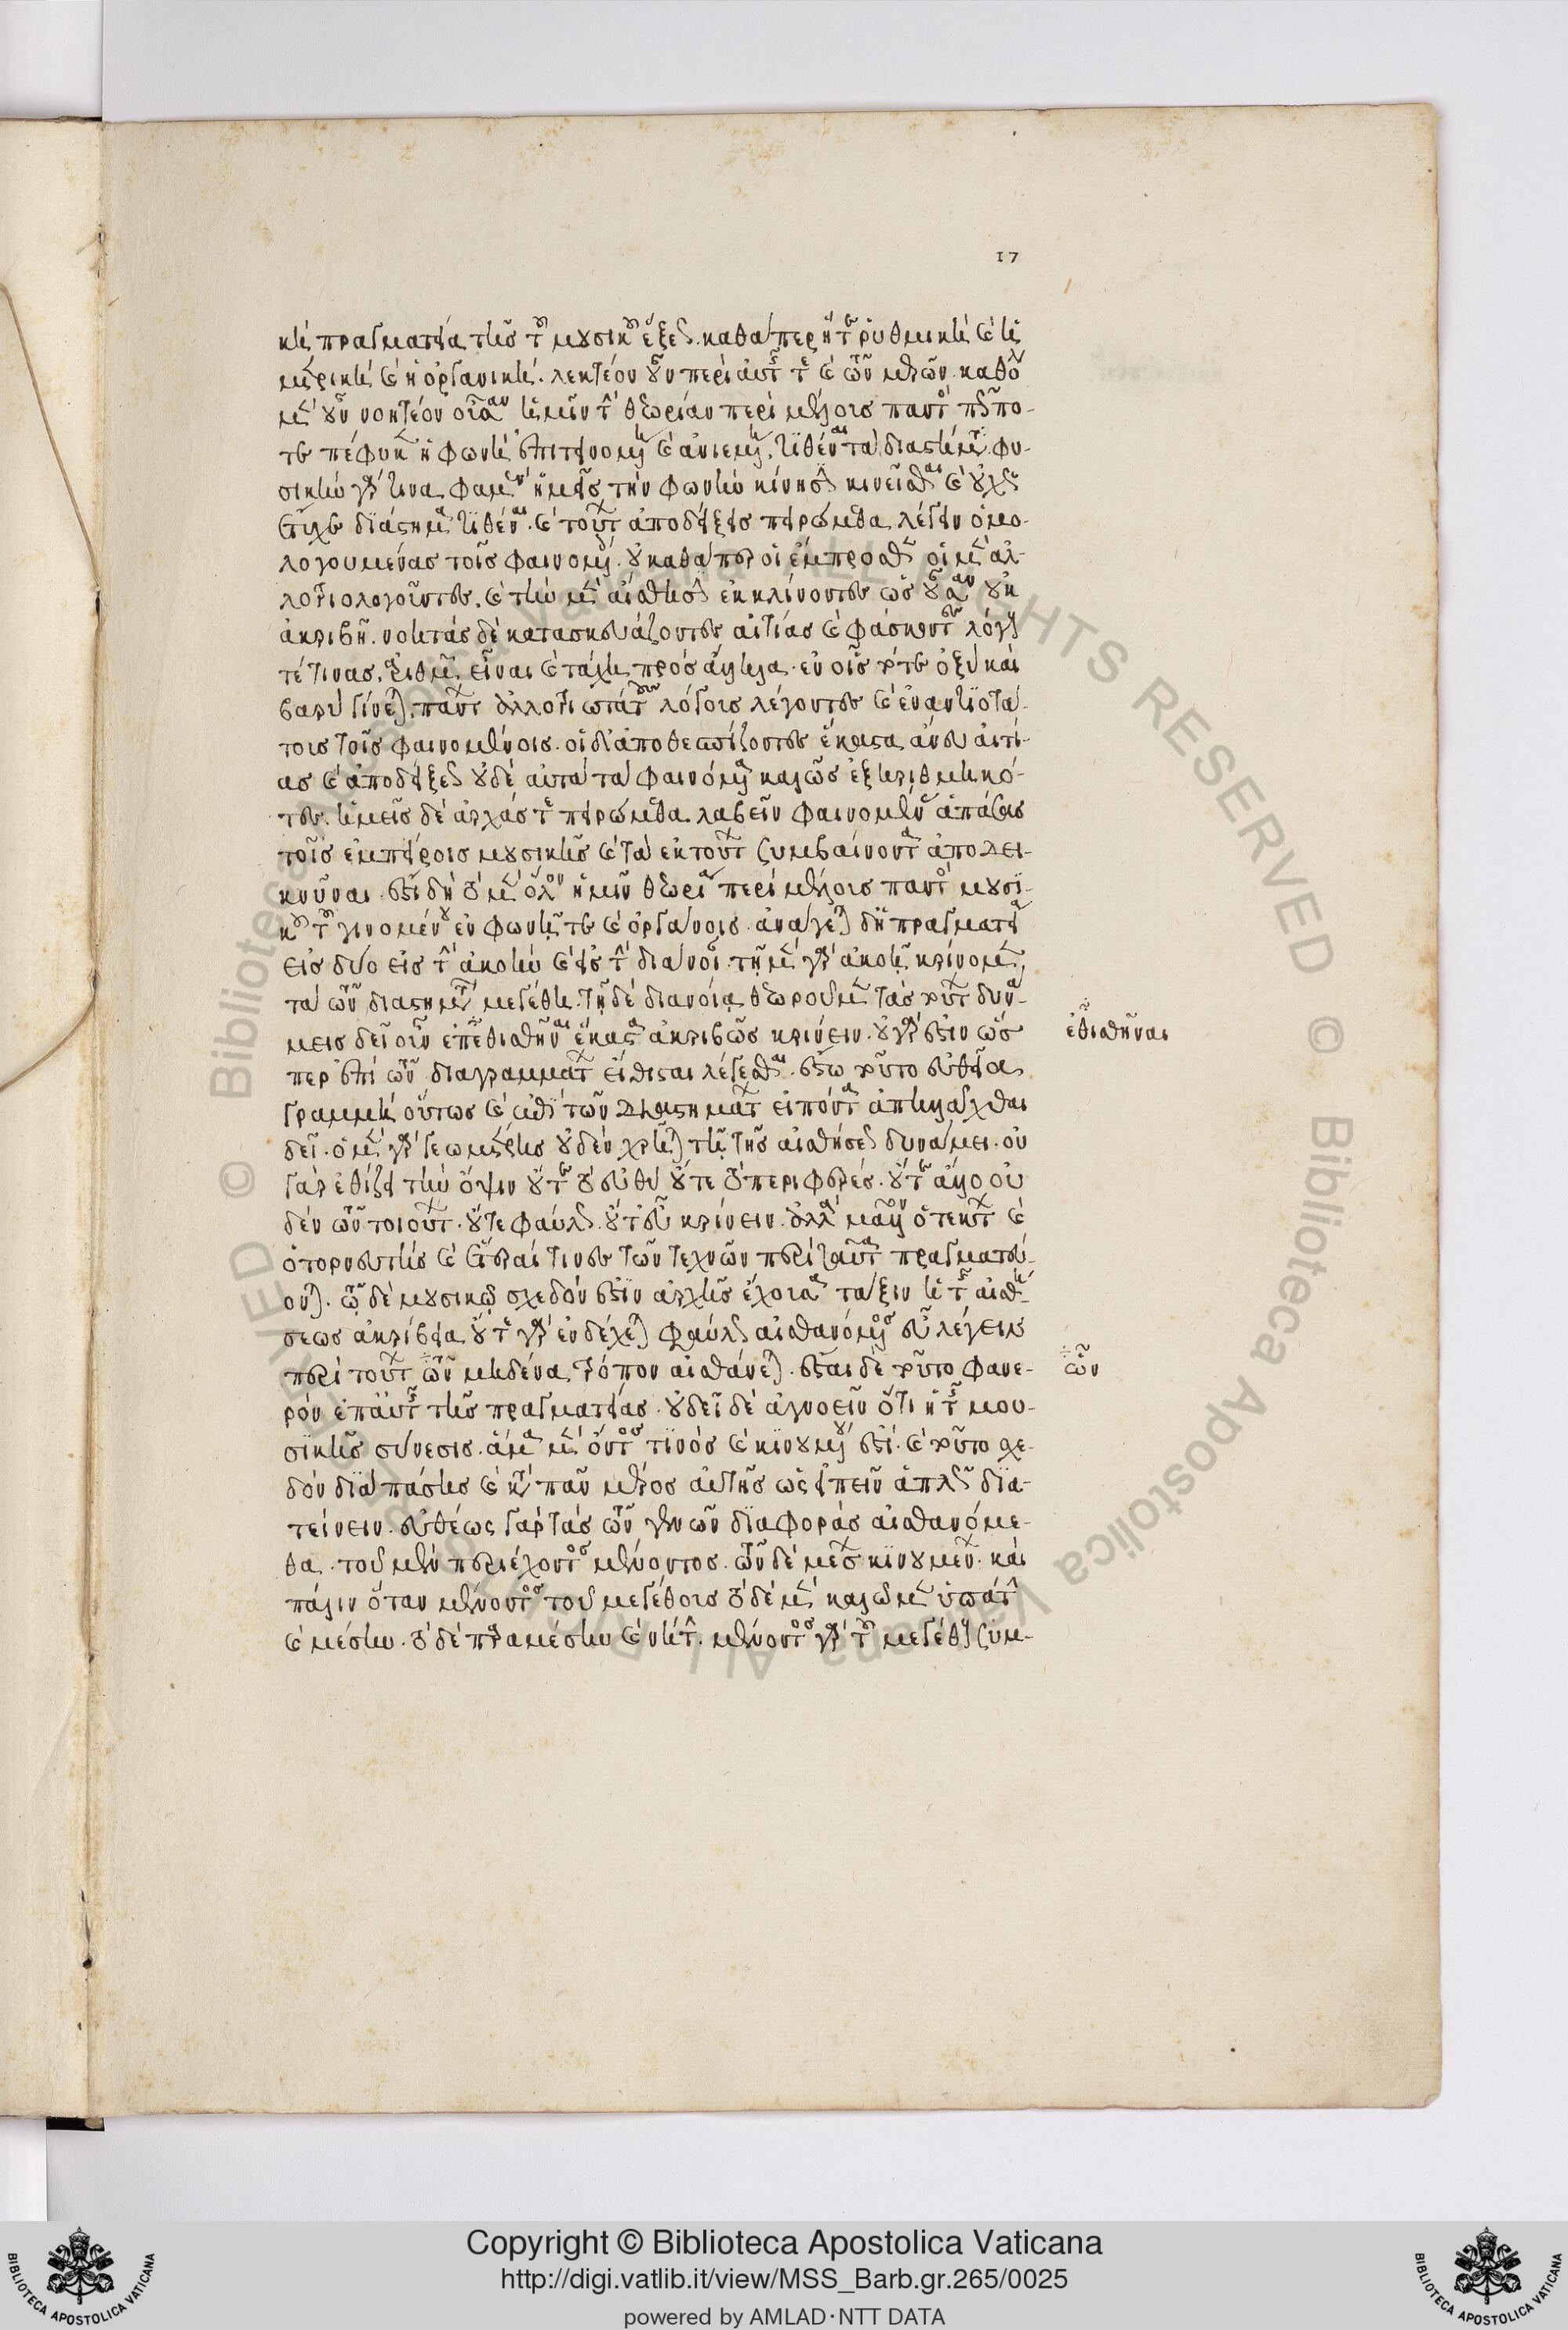 17
κὴ πραγματεία τῆς τοῦ μουσικοῦ ἕξεως. καθάπερ ἥ τε ῥυθμικὴ καὶ ἡ
μετρικὴ καὶ ἡ ὀργανική. λεκτέον οὖν περὶ αὐτῆς τε καὶ τῶν μερῶν. καθόλου
μὲν οὖν νοητέον οὖσαν ἡμῖν τὴν θεωρίαν περὶ μέλους παντὸς πῶς πο-
τε πέφυκεν ἡ φωνὴ ἐπιτεινομένη καὶ ἀνιεμένη τιθέναι τὰ διαστήματα. φυ-
σικὴν γὰρ τινα φαμὲν ἡμεῖς τὴν φωνὴν κίνησιν κινεῖσθαι καὶ οὐχ ὡς
ἔτυχε διάστημα τιθέναι. καὶ τούτων ἀποδείξεις πειρώμεθα λέγειν ὁμο-
λογουμένας τοῖς φαινομένοις. οὐ καθάπερ οἱ ἔμπροσθεν οἱ μὲν ἀλ-
λοτριολογοῦντες. καὶ τὴν μὲν αἴσθησιν ἐκκλίνοντες ὡς οὖσαν οὐκ
ἀκριβῆ. νοητὰς δὲ κατασκευάζοντες αἰτίας καὶ φάσκοντες λόγους
τέ τινας ἀριθμῶν εἶναι καὶ τάχη πρὸς ἄλληλα. ἐν οἷς τό τε ὀξὺ καὶ
βαρὺ γίνεται. πάντων ἀλλοτριωτάτους λόγους λέγοντες καὶ ἐναντιωτά-
τους τοῖς φαινομένοις. οἱ δ' ἀποθεσπίζοντες ἕκαστα ἄνευ αἰτί-
ας καὶ ἀποδείξεως οὐδὲ αὐτὰ τὰ φαινόμενα καλῶς ἐξηριθμηκό-
τες. ἡμεῖς δὲ ἀρχάς τε πειρώμεθα λαβεῖν φαινομένας ἁπάσας
τοῖς ἐμπείροις μουσικῆς καὶ τὰ ἐκ τούτων συμβαίνοντα ἀποδει-
κνύναι. ἔστι δὴ τὸ μὲν ὅλον ἡμῖν θεωρία περὶ μέλους παντὸς μουσι-
κοῦ τοῦ γινομένου ἐν φωνῇ τε καὶ ὀργάνοις. ἀνάγεται δ' ἡ πραγματεία
εἰς δύο εἴς τε τὴν ἀκοὴν καὶ εἰς τὴν διάνοιαν. τῇ μὲν γὰρ ἀκοῇ κρίνομεν
τὰ τῶν διαστημάτων μεγέθη. τῇ δὲ διανοίᾳ θεωροῦμεν τὰς τούτων δυνά-
μεις δεῖ οὖν ἐπεθισθῆναι ἕκαστα ἀκριβῶς κρίνειν. οὐ γάρ ἐστιν ὥσ-
ἐθισθῆναι
περ ἐπὶ τῶν διαγραμμάτων εἴθισται λέγεσθαι. ἔστω τοῦτο εὐθεῖα
γραμμὴ οὕτως καὶ ἐπὶ τῶν διαστημάτων εἰπόντα ἀπηλλάχθαι
δεῖ. ὁ μὲν γὰρ γεωμέτρης οὐδὲν χρῆται τῇ τῆς αἰσθήσεως δυνάμει. οὐ
γὰρ ἐθίζει τὴν ὄψιν οὔτε τὸ εὐθὺ οὔτε τὸ περιφερές. οὔτε ἄλλο οὐ-
δὲν τῶν τοιούτων. οὔτε φαύλως. οὔτε εὖ κρίνειν. ἀλλὰ μᾶλλον ὁ τέκτων καὶ
ὁ τορνευτὴς καὶ ἕτεραί τινες τῶν τεχνῶν περὶ ταῦτα πραγματεύ-
ονται. τῷ δὲ μουσικῷ σχεδόν ἐστιν ἀρχῆς ἔχουσα τάξιν ἡ τῆς αἰσθή-
σεως ἀκρίβεια. οὔτε γὰρ ἐνδέχεται φαύλως αἰσθανόμενος εὖ λέγειν
περὶ τούτων ὧν μηδένα τρόπον αἰσθάνεται. ἔσται δὲ τοῦτο φανε-
ὧν
ρὸν ἐπ' αὐτῆς τῆς πραγματείας. οὐ δεῖ δὲ ἀγνοεῖν ὅτι ἡ τῆς μου-
σικῆς σύνεσις. ἅμα μένοντός τινος καὶ κινουμένου ἐστί. καὶ τοῦτο σχε-
δὸν διὰ πάσης καὶ κατὰ πᾶν μέρος αὐτῆς ὡς εἰπεῖν ἁπλῶς δια-
τείνειν. εὐθέως γὰρ τὰς τῶν γενῶν διαφορὰς αἰσθανόμε-
θα. τοῦ μὲν περιέχοντος μένοντος. τῶν δὲ μέσων κινουμένων. καὶ
πάλιν ὅταν μένοντος τοῦ μεγέθους τὸ δὲ μὲν καλῶμεν ὑπάτην
καὶ μέσην. τὸ δὲ παραμέσην καὶ νήτην. μένοντος γὰρ τοῦ μεγέθους συμ-
Copyright © Biblioteca Apostolica Vaticana
http://digi.vatlib.it/view/MSS_Barb.gr.265/0025
powered by AMLAD·NTT DATA